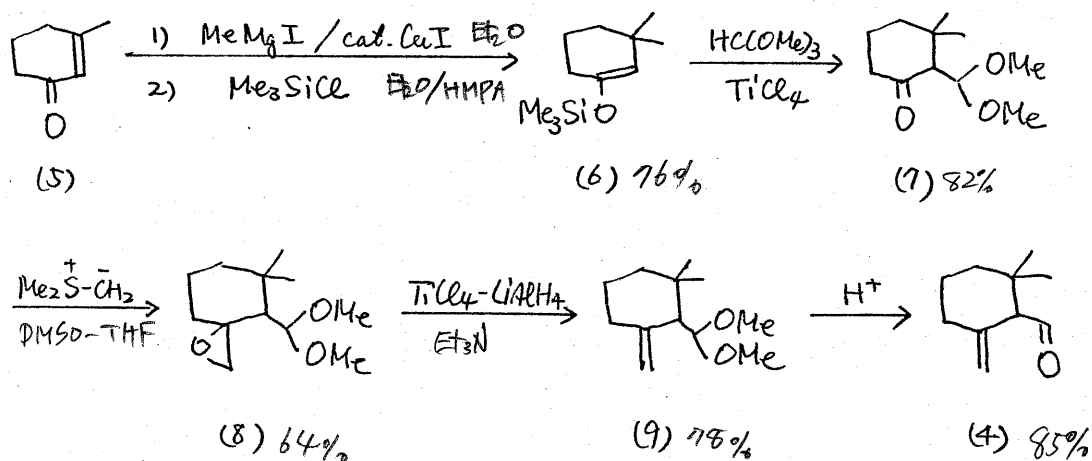 1) MeMgI / cat. CuI Et₂O
2) Me₃SiCl Et₂O/HMPA
HC(OMe)₃
TiCl₄
O
Me₃SiO
OMe
O
OMe
(5)
(6) 76%
(7) 82%
Me₂S⁺-C̄H₂
DMSO-THF
O
OMe
OMe
TiCl₄-LiAlH₄
Et₃N
OMe
OMe
H⁺
O
(8) 64%
(9) 78%
(4) 85%